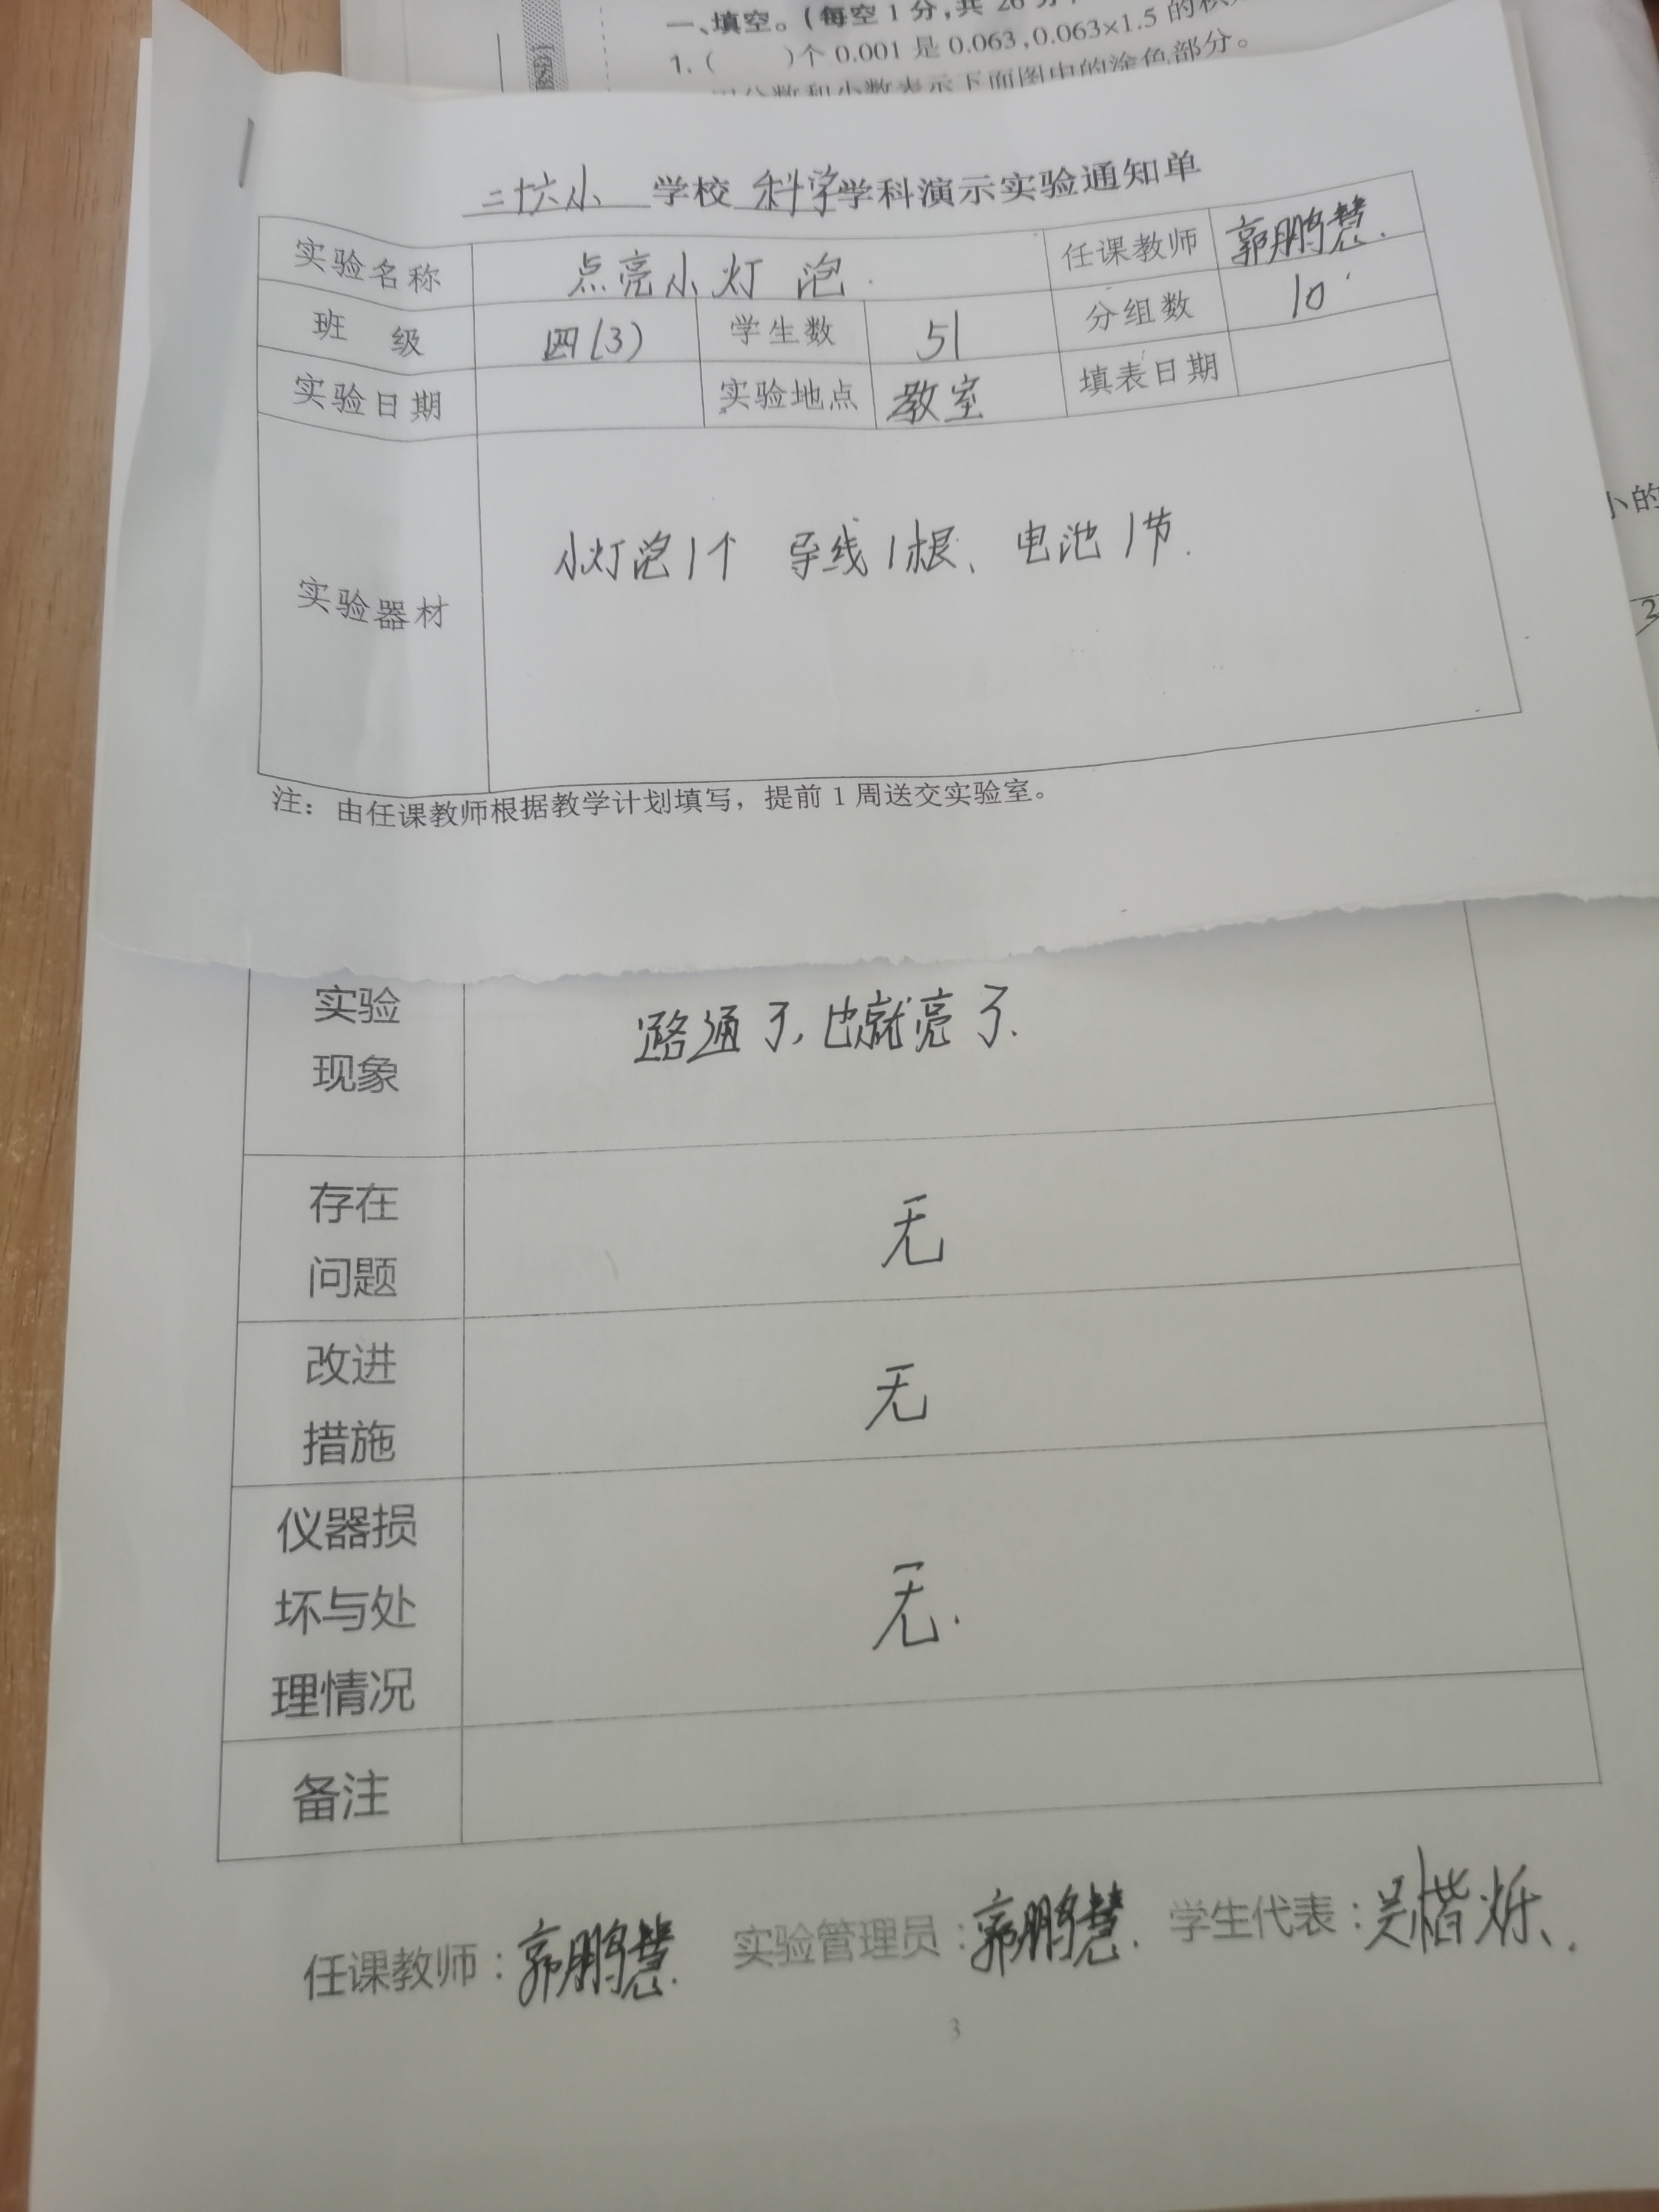 一、填空。(每空1分,共26分
1.(  )个0.001是0.063,0.063×1.5的积
二十六小 学校 科学 学科演示实验通知单
实验名称 点亮小灯泡. 任课教师 郭鹏慧.
班 级 四(3) 学生数 51 分组数 10
实验日期 实验地点 教室 填表日期
实验器材 小灯泡1个 导线1根、电池1节.
注：由任课教师根据教学计划填写，提前1周送交实验室。
小的
实验
现象
路通了,也就亮了.
存在
问题
无
改进
措施
无
仪器损
坏与处
理情况
无.
备注
任课教师：郭鹏慧. 实验管理员：郭鹏慧. 学生代表：吴楷烁.
3